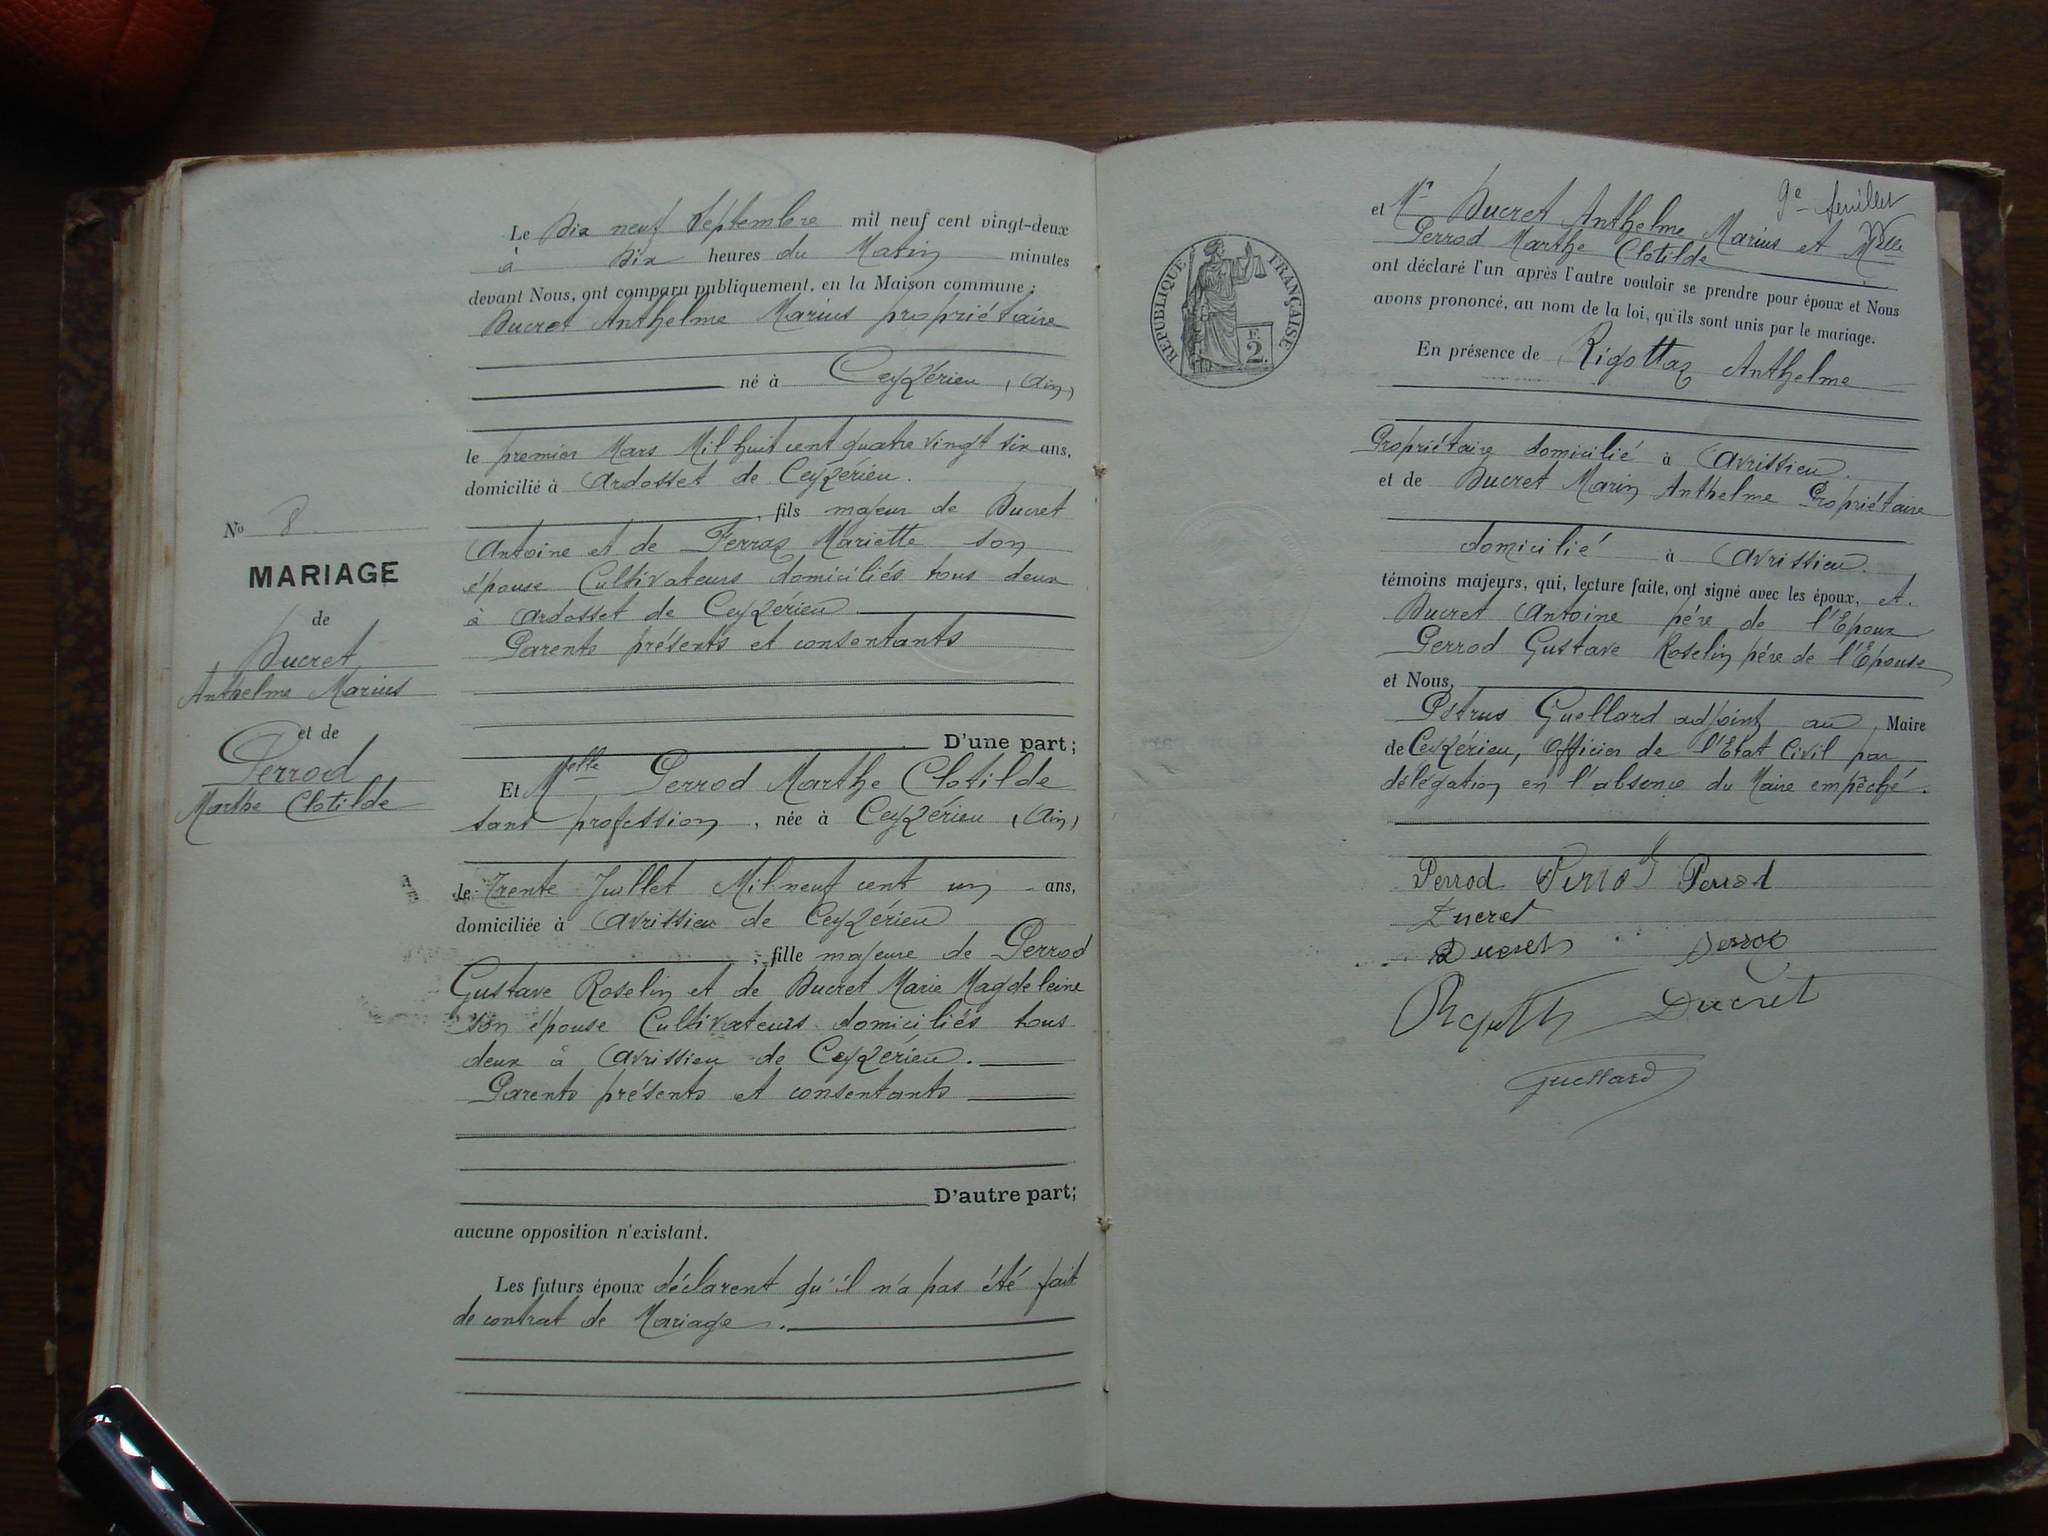 Le Dix neuf Septembre mil neuf cent vingt-deux
à Dix heures du Matin minutes
devant Nous, ont comparu publiquement, en la Maison commune :
Ducret Anthelme Marius propriétaire
né à Ceyzérieu (Ain)
le premier Mars Mil huit cent quatre vingt six ans,
domicilié à Ardosset de Ceyzérieu.
, fils majeur de Ducret
Antoine et de Ferraz Mariette son
épouse Cultivateurs domiciliés tous deux
à Ardosset de Ceyzérieu
Parents présents et consentants
D'une part ;
No 8.
MARIAGE
de
Ducret
Anthelme Marius
et de
Perrod
Marthe Clotilde
Et Melle Perrod Marthe Clotilde
sans profession, née à Ceyzérieu (Ain)
le Trente Juillet Mil neuf cent un ans,
domiciliée à Avrissieu de Ceyzérieu
; fille majeure de Perrod
Gustave Roselin et de Ducret Marie Magdeleine
son épouse Cultivateurs domiciliés tous
deux à Avrissieu de Ceyzérieu.
Parents présents et consentants
D'autre part;
aucune opposition n'existant.
Les futurs époux déclarent qu'il n'a pas été fait
de contrat de Mariage.
9e feuillet
et Mr Ducret Anthelme Marius et Melle
Perrod Marthe Clotilde
ont déclaré l'un après l'autre vouloir se prendre pour époux et Nous
avons prononcé, au nom de la loi, qu'ils sont unis par le mariage.
En présence de Rigottaz Anthelme
RÉPUBLIQUE FRANÇAISE
2F.
Propriétaire domicilié à Avrissieu.
et de Ducret Marin Anthelme Propriétaire
domicilié à Avrissieu.
témoins majeurs, qui, lecture faite, ont signé avec les époux, et.
Ducret Antoine père de l'Epoux
Perrod Gustave Roselin père de l'Epouse
et Nous,
Pétrus Guellard adjoint au Maire
de Ceyzérieu, Officier de l'Etat Civil par
délégation en l'absence du Maire empêché.
Perrod Perrod Perrod
Ducret
Ducret Perrod
Ducret
Guellard